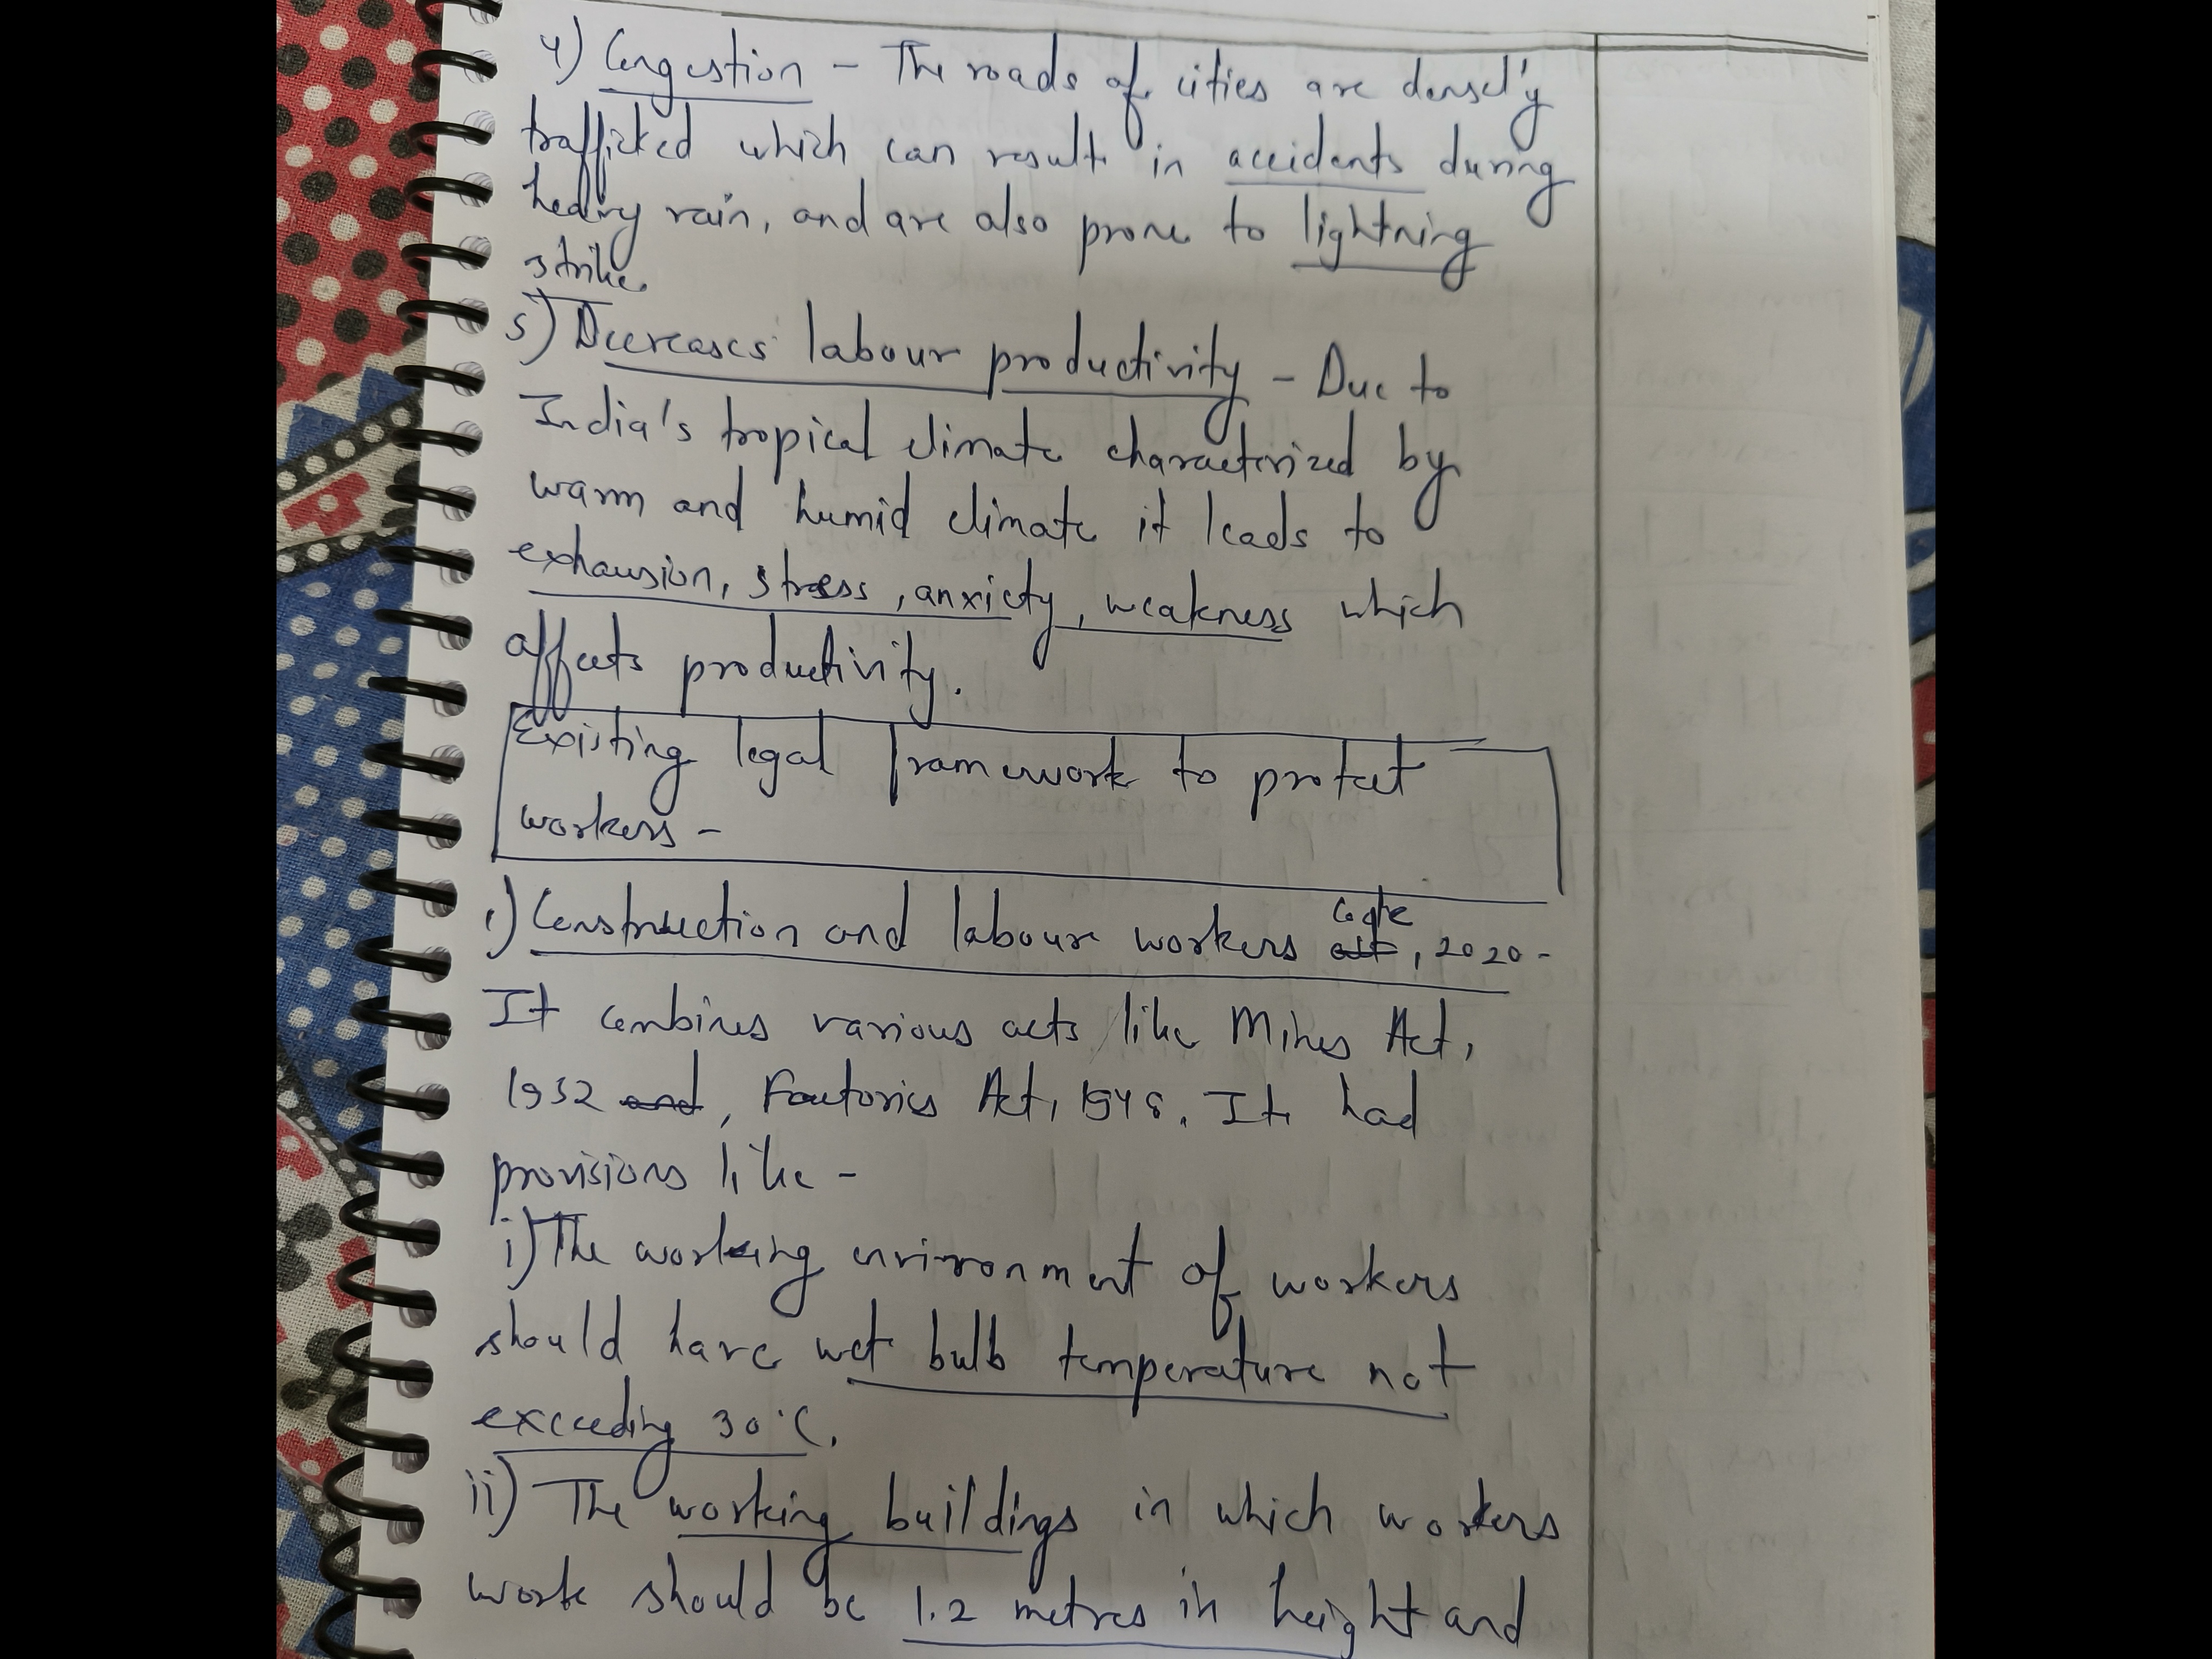 4) Congestion - The roads of cities are densely
trafficked which can result in accidents during
heavy rain, and are also prone to lightning
strike.
5) Decreases labour productivity - Due to
India's tropical climate characterized by
warm and humid climate it leads to
exhausion, stress, anxiety, weakness which
affects productivity.
Existing legal framework to protect
workers -
1) Construction and labour workers code, 2020 -
It combines various acts like Mines Act,
1952, Factories Act, 1948. It had
provisions like -
i) The working environment of workers
should have wet bulb temperature not
exceeding 30°C.
ii) The working buildings in which workers
work should be 1.2 metres in height and